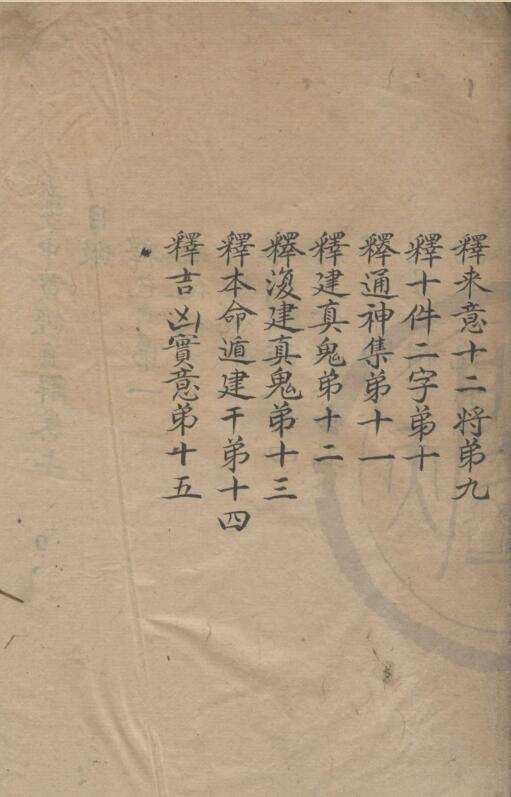 釋来意十二将苐九
釋十件二字苐十
釋通神集苐十一
釋建真鬼苐十二
釋復建真鬼苐十三
釋本命遁建干苐十四
釋吉凶實意苐十五